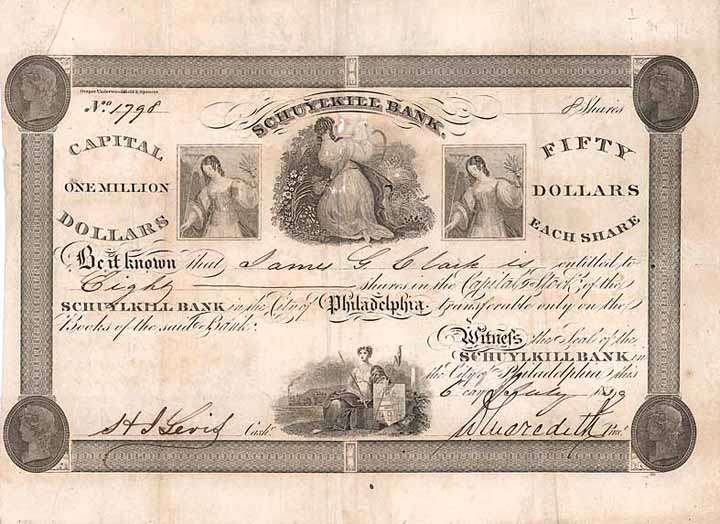 Draper Underwood Bald & Spencer
No 1798
8 Shares
SCHUYLKILL BANK.
CAPITAL
ONE MILLION
DOLLARS
FIFTY
DOLLARS
EACH SHARE
Be it known that James G. Clark is entitled to
Eight shares in the Capital Stock of the
SCHUYLKILL BANK in the City of Philadelphia. transferable only on the
Books of the said Bank.
Witness the Seal of the
SCHUYLKILL BANK in
the City of Philadelphia this
6 day July 1839
H J Levis Cashr.
W Meredith Pres.